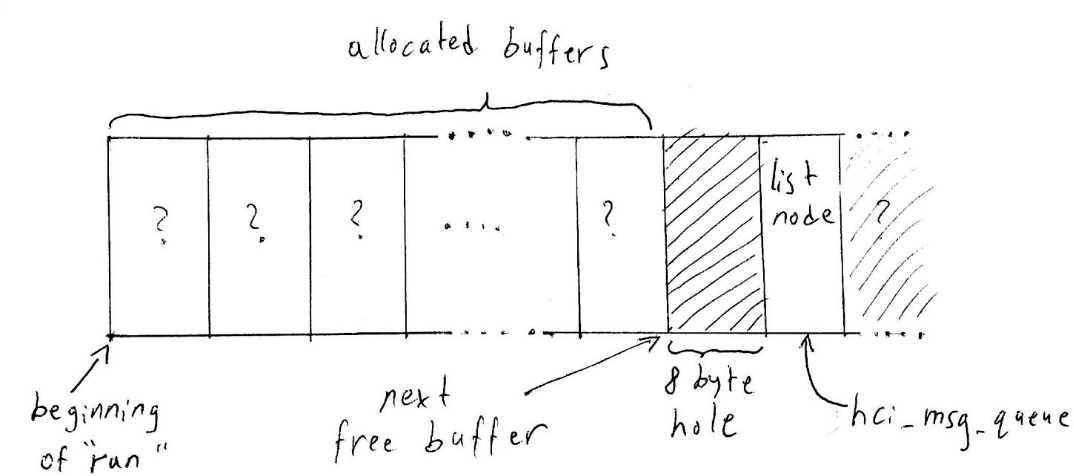 allocated buffers
....
? ? ? .... ? list node ?
beginning of "run"
next free buffer
8 byte hole
hci_msg_queue